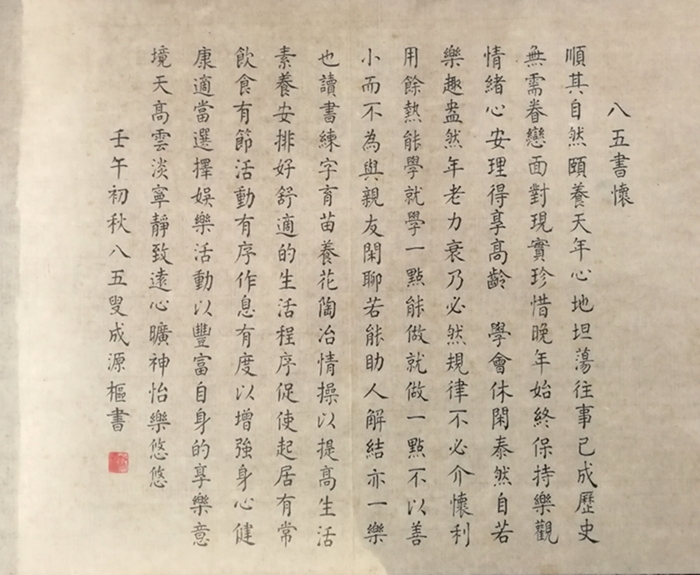 八五書懷
順其自然頤養天年心地坦蕩往事已成歷史
無需眷戀面對現實珍惜晚年始終保持樂觀
情緒心安理得享高齡 學會休閑泰然自若
樂趣盎然年老力衰乃必然規律不必介懷利
用餘熱能學就學一點能做就做一點不以善
小而不為與親友閑聊若能助人解結亦一樂
也讀書練字育苗養花陶冶情操以提高生活
素養安排好舒適的生活程序促使起居有常
飲食有節活動有序作息有度以增強身心健
康適當選擇娛樂活動以豐富自身的享樂意
境天高雲淡寧靜致遠心曠神怡樂悠悠
壬午初秋八五叟成源樞書